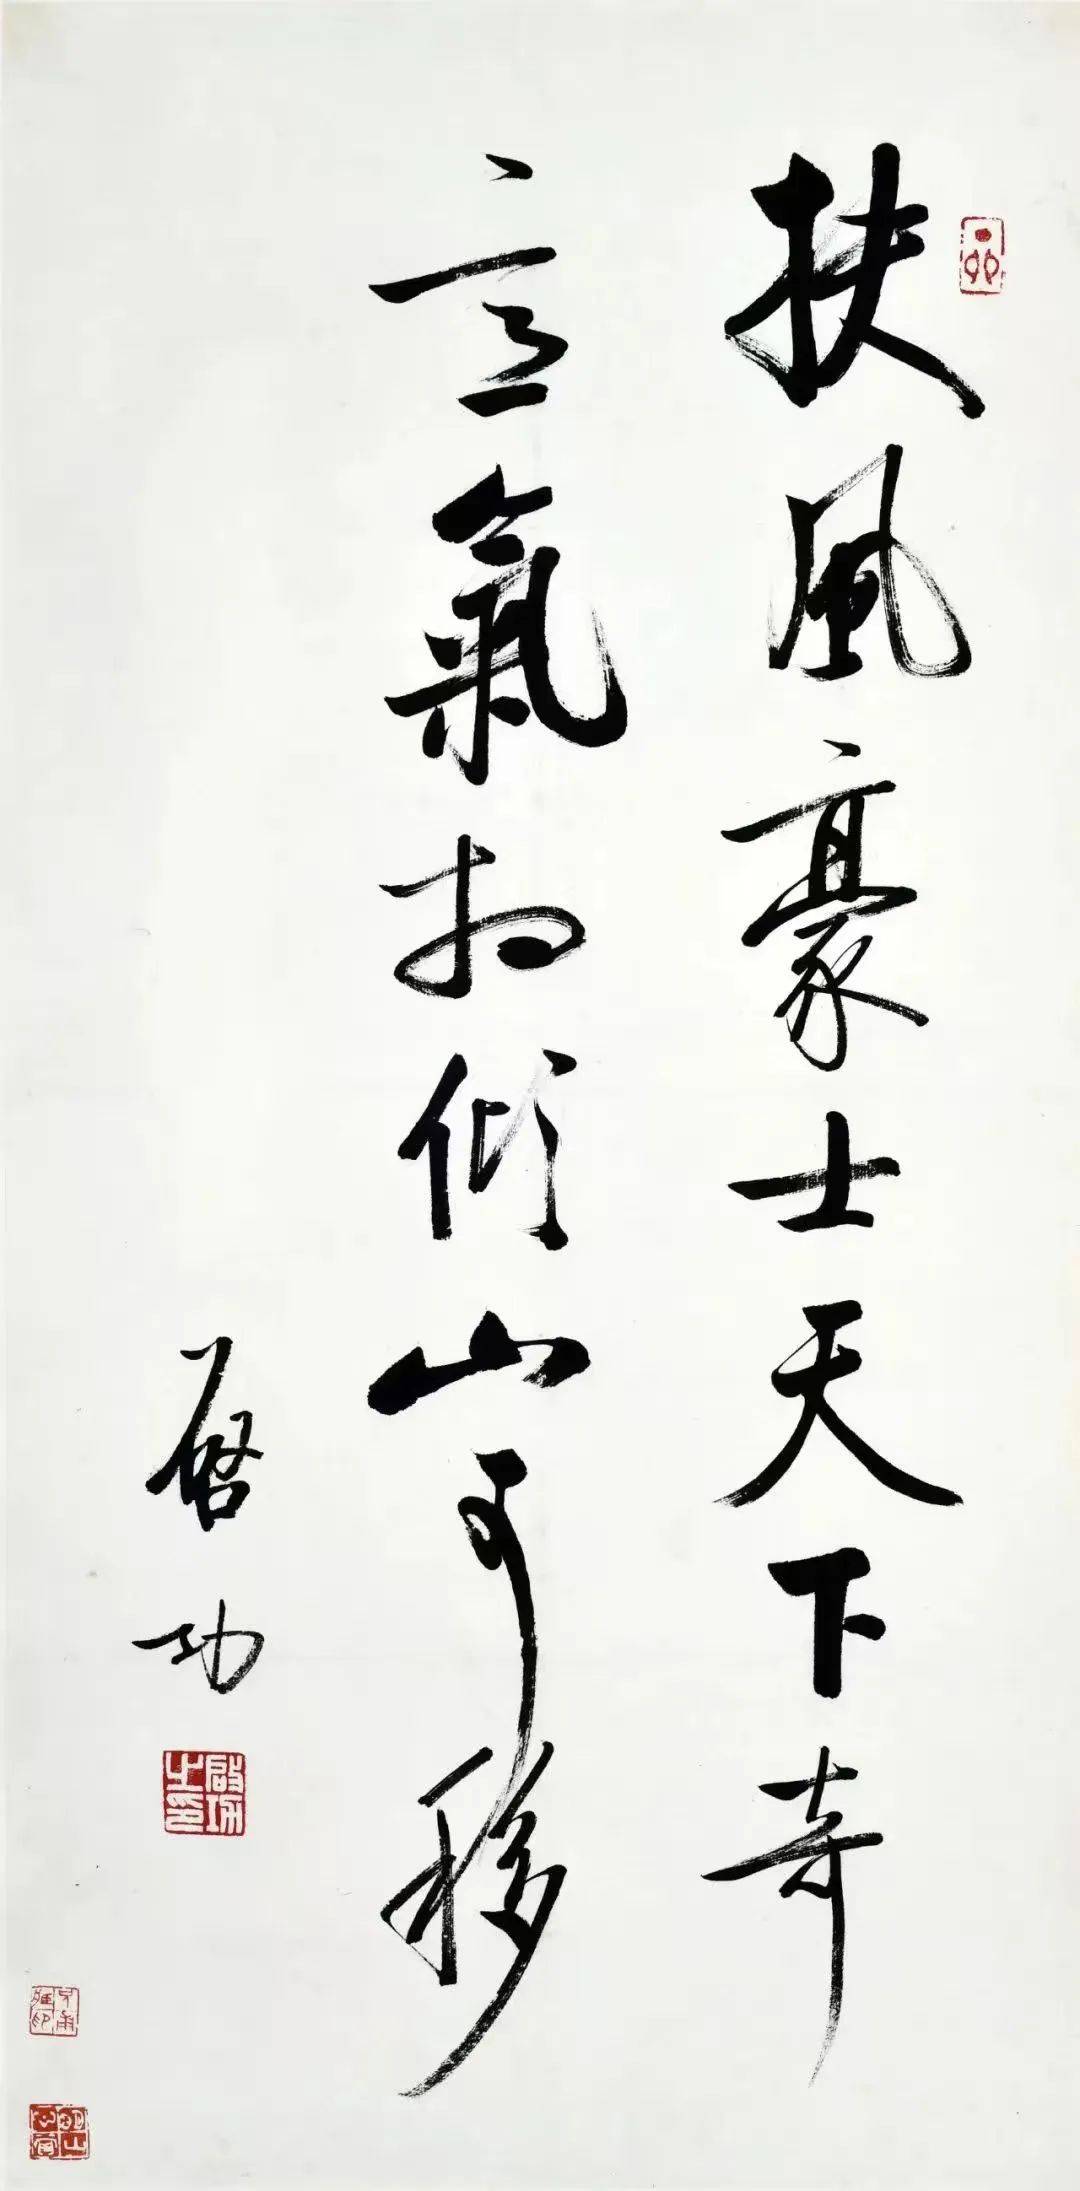 扶風豪士天下奇
意氣相傾山可移
啓功
啓功之印